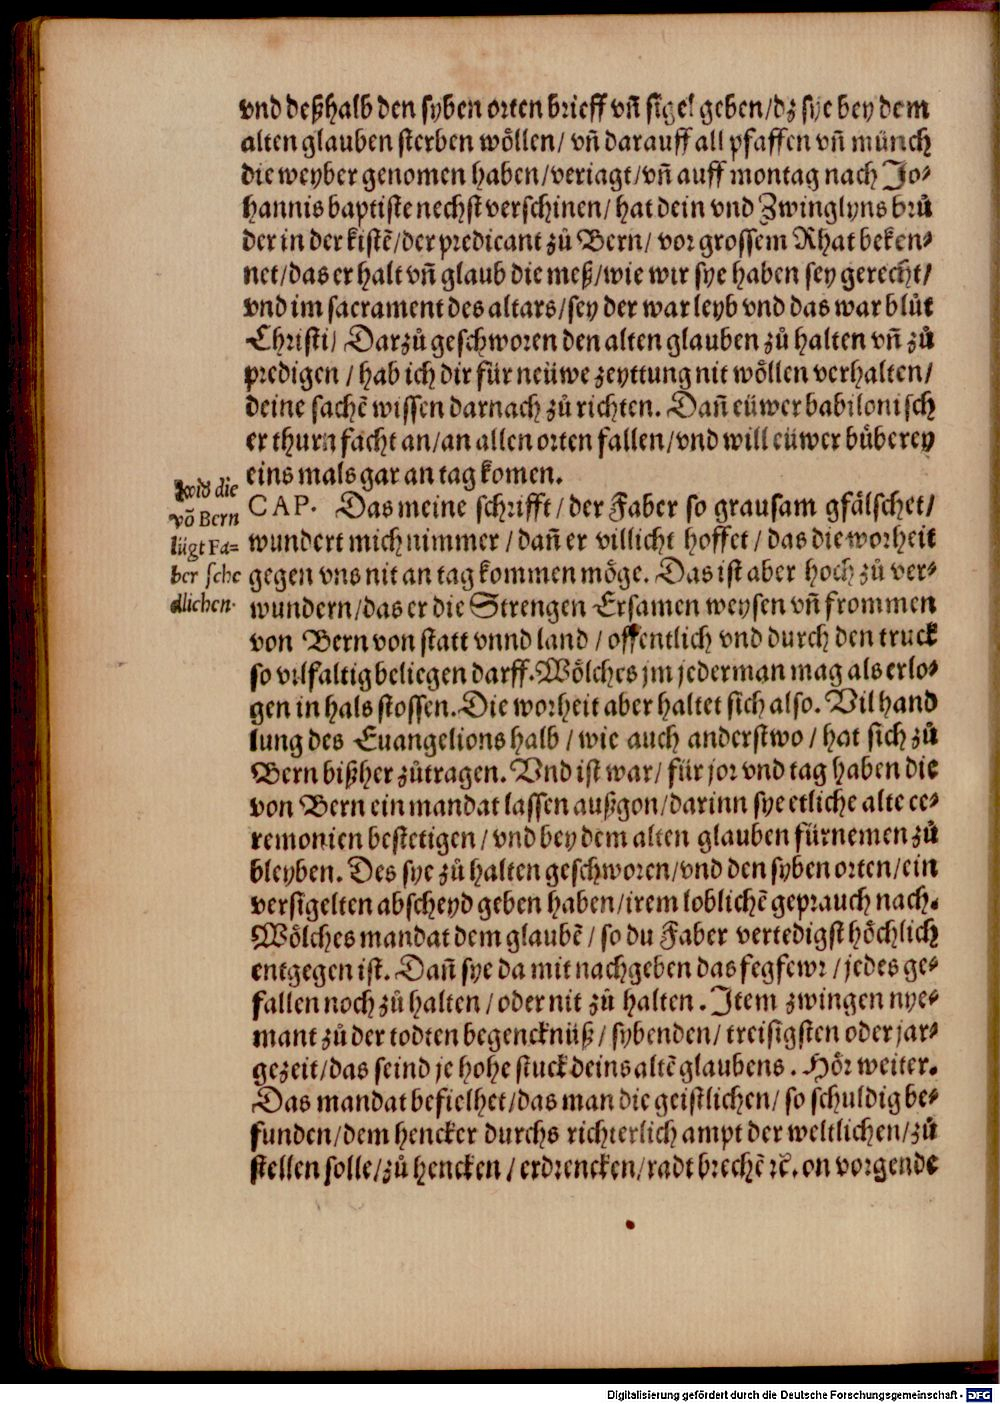 vnd deßhalb den syben orten brieff vñ sigel geben/dz sye bey dem
alten glauben sterben wöllen/ vñ darauff all pfaffen vñ münch
die weyber genomen haben/veriagt/vñ auff montag nach Jo-
hannis baptiste nechst verschinen/ hat dein vnd Zwinglyns brů
der in der kistẽ/der predicant zů Bern/ vor grossem Rhat beken-
net/das er halt vñ glaub die meß/wie wir sye haben sey gerecht/
vnd im sacrament des altars/sey der war leyb vnd das war blůt
Christi/ Darzů geschworen den alten glauben zů halten vñ zů
predigen / hab ich dir für neüwe zeyttung nit wöllen verhalten/
deine sachẽ wissen darnach zů richten. Dañ eüwer babilonisch
er thurn facht an/an allen orten fallen/vnd will eüwer bůberey
eins mals gar an tag komen.
CAP. Das meine schrifft/ der Faber so grausam gfälschet/
wundert mich nimmer / dañ er villicht hoffet / das die worheit
gegen vns nit an tag kommen möge. Das ist aber hoch zů ver-
wundern/das er die Strengen Ersamen weysen vñ frommen
von Bern von statt vnnd land / offentlich vnd durch den truck
so vilfaltig beliegen darff. Wölches jm jederman mag als erlo-
gen in hals stossen. Die worheit aber haltet sich also. Vil hand
lung des Euangelions halb / wie auch anderstwo / hat sich zů
Bern bißher zůtragen. Vnd ist war/ für jor vnd tag haben die
von Bern ein mandat lassen außgon/darinn sye etliche alte ce-
remonien bestetigen / vnd bey dem alten glauben fürnemen zů
bleyben. Des sye zů halten geschworen/vnd den syben orten/ein
versigelten abscheyd geben haben/irem loblichẽ geprauch nach.
Wölches mandat dem glaubẽ / so du Faber vertedigst höchlich
entgegen ist. Dañ sye da mit nachgeben das fegfewr / jedes ge-
fallen noch zů halten / oder nit zů halten. Item zwingen nye-
mant zů der todten begencknüß / sybenden/ treisigsten oder jar-
gezeit/das seind je hohe stuck deins altẽ glaubens. Hör weiter.
Das mandat befielhet/das man die geistlichen/ so schuldig be-
funden/dem hencker durchs richterlich ampt der weltlichen/zů
stellen solle/zů hencken / erdrencken/radtbrechẽ ꝛc̃. on vorgende
wid die
võ Bern
lügt Fa-
ber sche
dlichen.
Digitalisierung gefördert durch die Deutsche Forschungsgemeinschaft - DFG